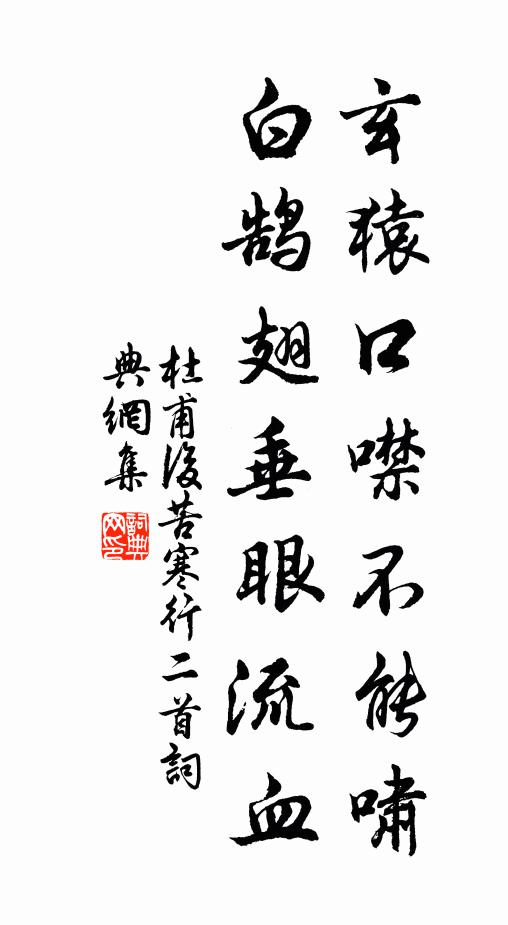 玄猿口噤不能嘯
白鵠翅垂眼流血
杜甫後苦寒行二首詞
典網集
詞典
网印